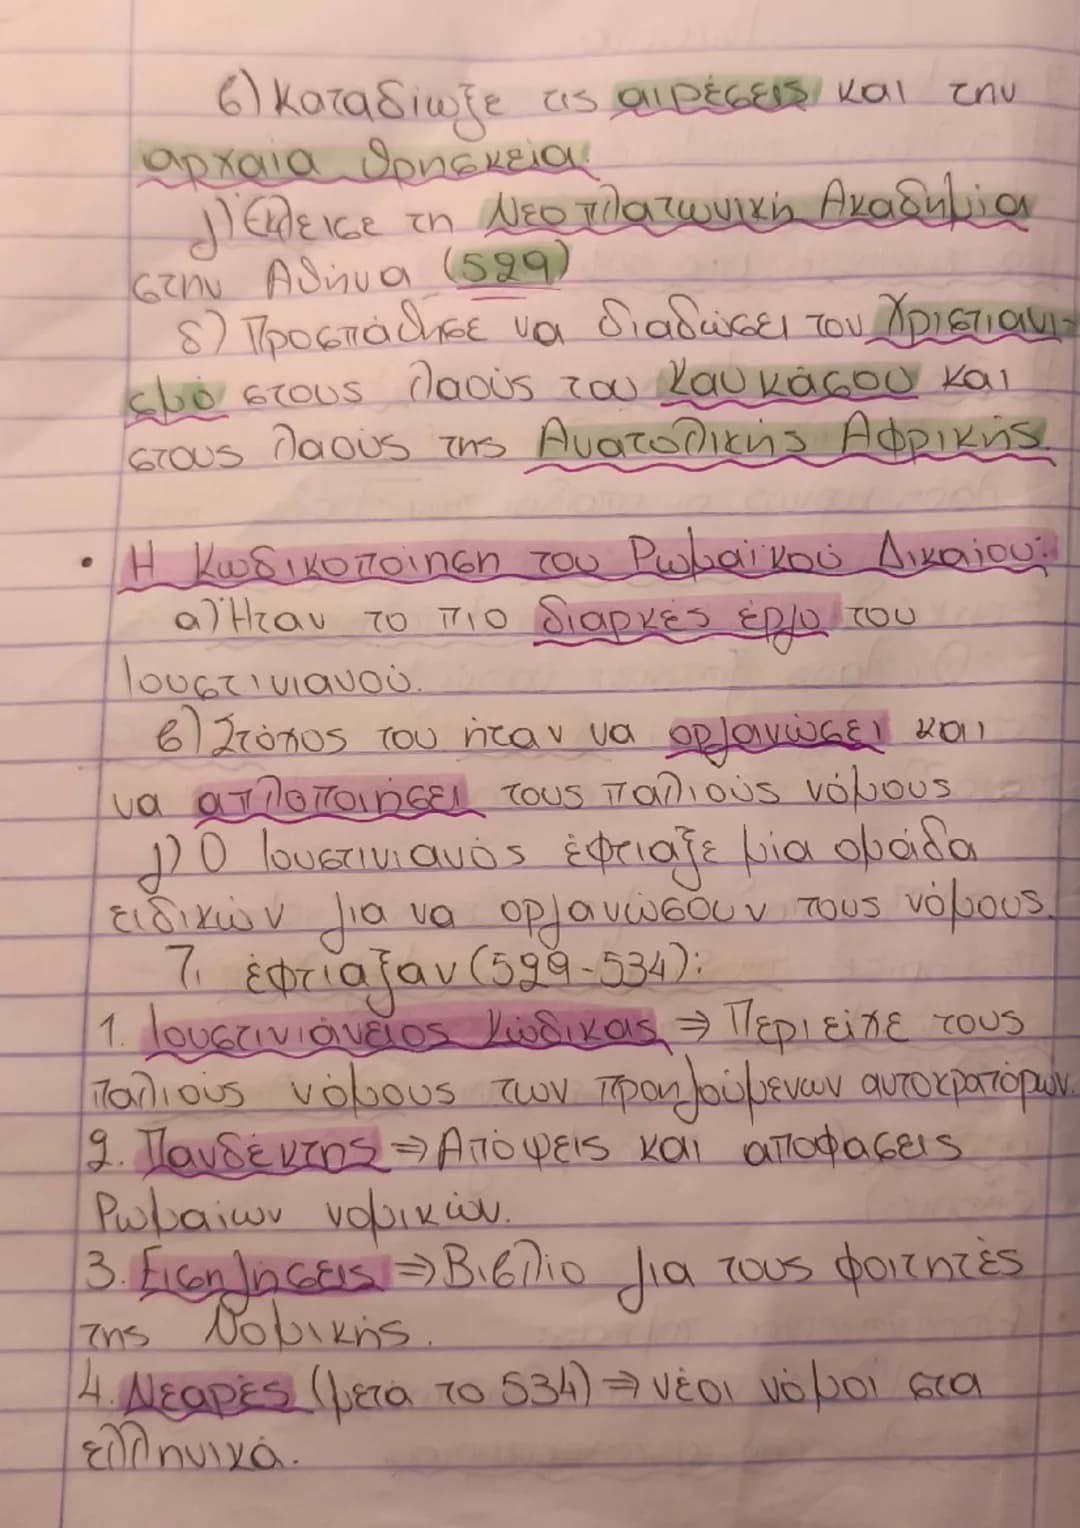 β) Καταδίωξε τις αιρέσεις και την
αρχαία θρησκεία.
γ) Έκλεισε τη Νεοπλατωνική Ακαδημία
στην Αθήνα (529)
δ) Προσπάθησε να διαδώσει τον Χριστιανι-
σμό στους λαούς του Καυκάσου και
στους λαούς της Ανατολικής Αφρικής.
• Η Κωδικοποίηση του Ρωμαϊκού Δικαίου:
α) Ήταν το πιο διαρκές έργο του
Ιουστινιανού.
β) Στόχος του ήταν να οργανώσει και
να απλοποιήσει τους παλιούς νόμους
γ) Ο Ιουστινιανός έφτιαξε μία ομάδα
ειδικών για να οργανώσουν τους νόμους.
7. έφτιαξαν (529-534):
1. Ιουστινιάνειος Κώδικας ⇒ Περιείχε τους
παλιούς νόμους των προηγούμενων αυτοκρατόρων.
2. Πανδέκτης ⇒ Απόψεις και αποφασεις
Ρωμαίων νομικών.
3. Εισηγήσεις ⇒ Βιβλίο για τους φοιτητές
της Νομικής.
4. Νεαρές (μετά το 534) ⇒ νέοι νόμοι στα
ελληνικά.